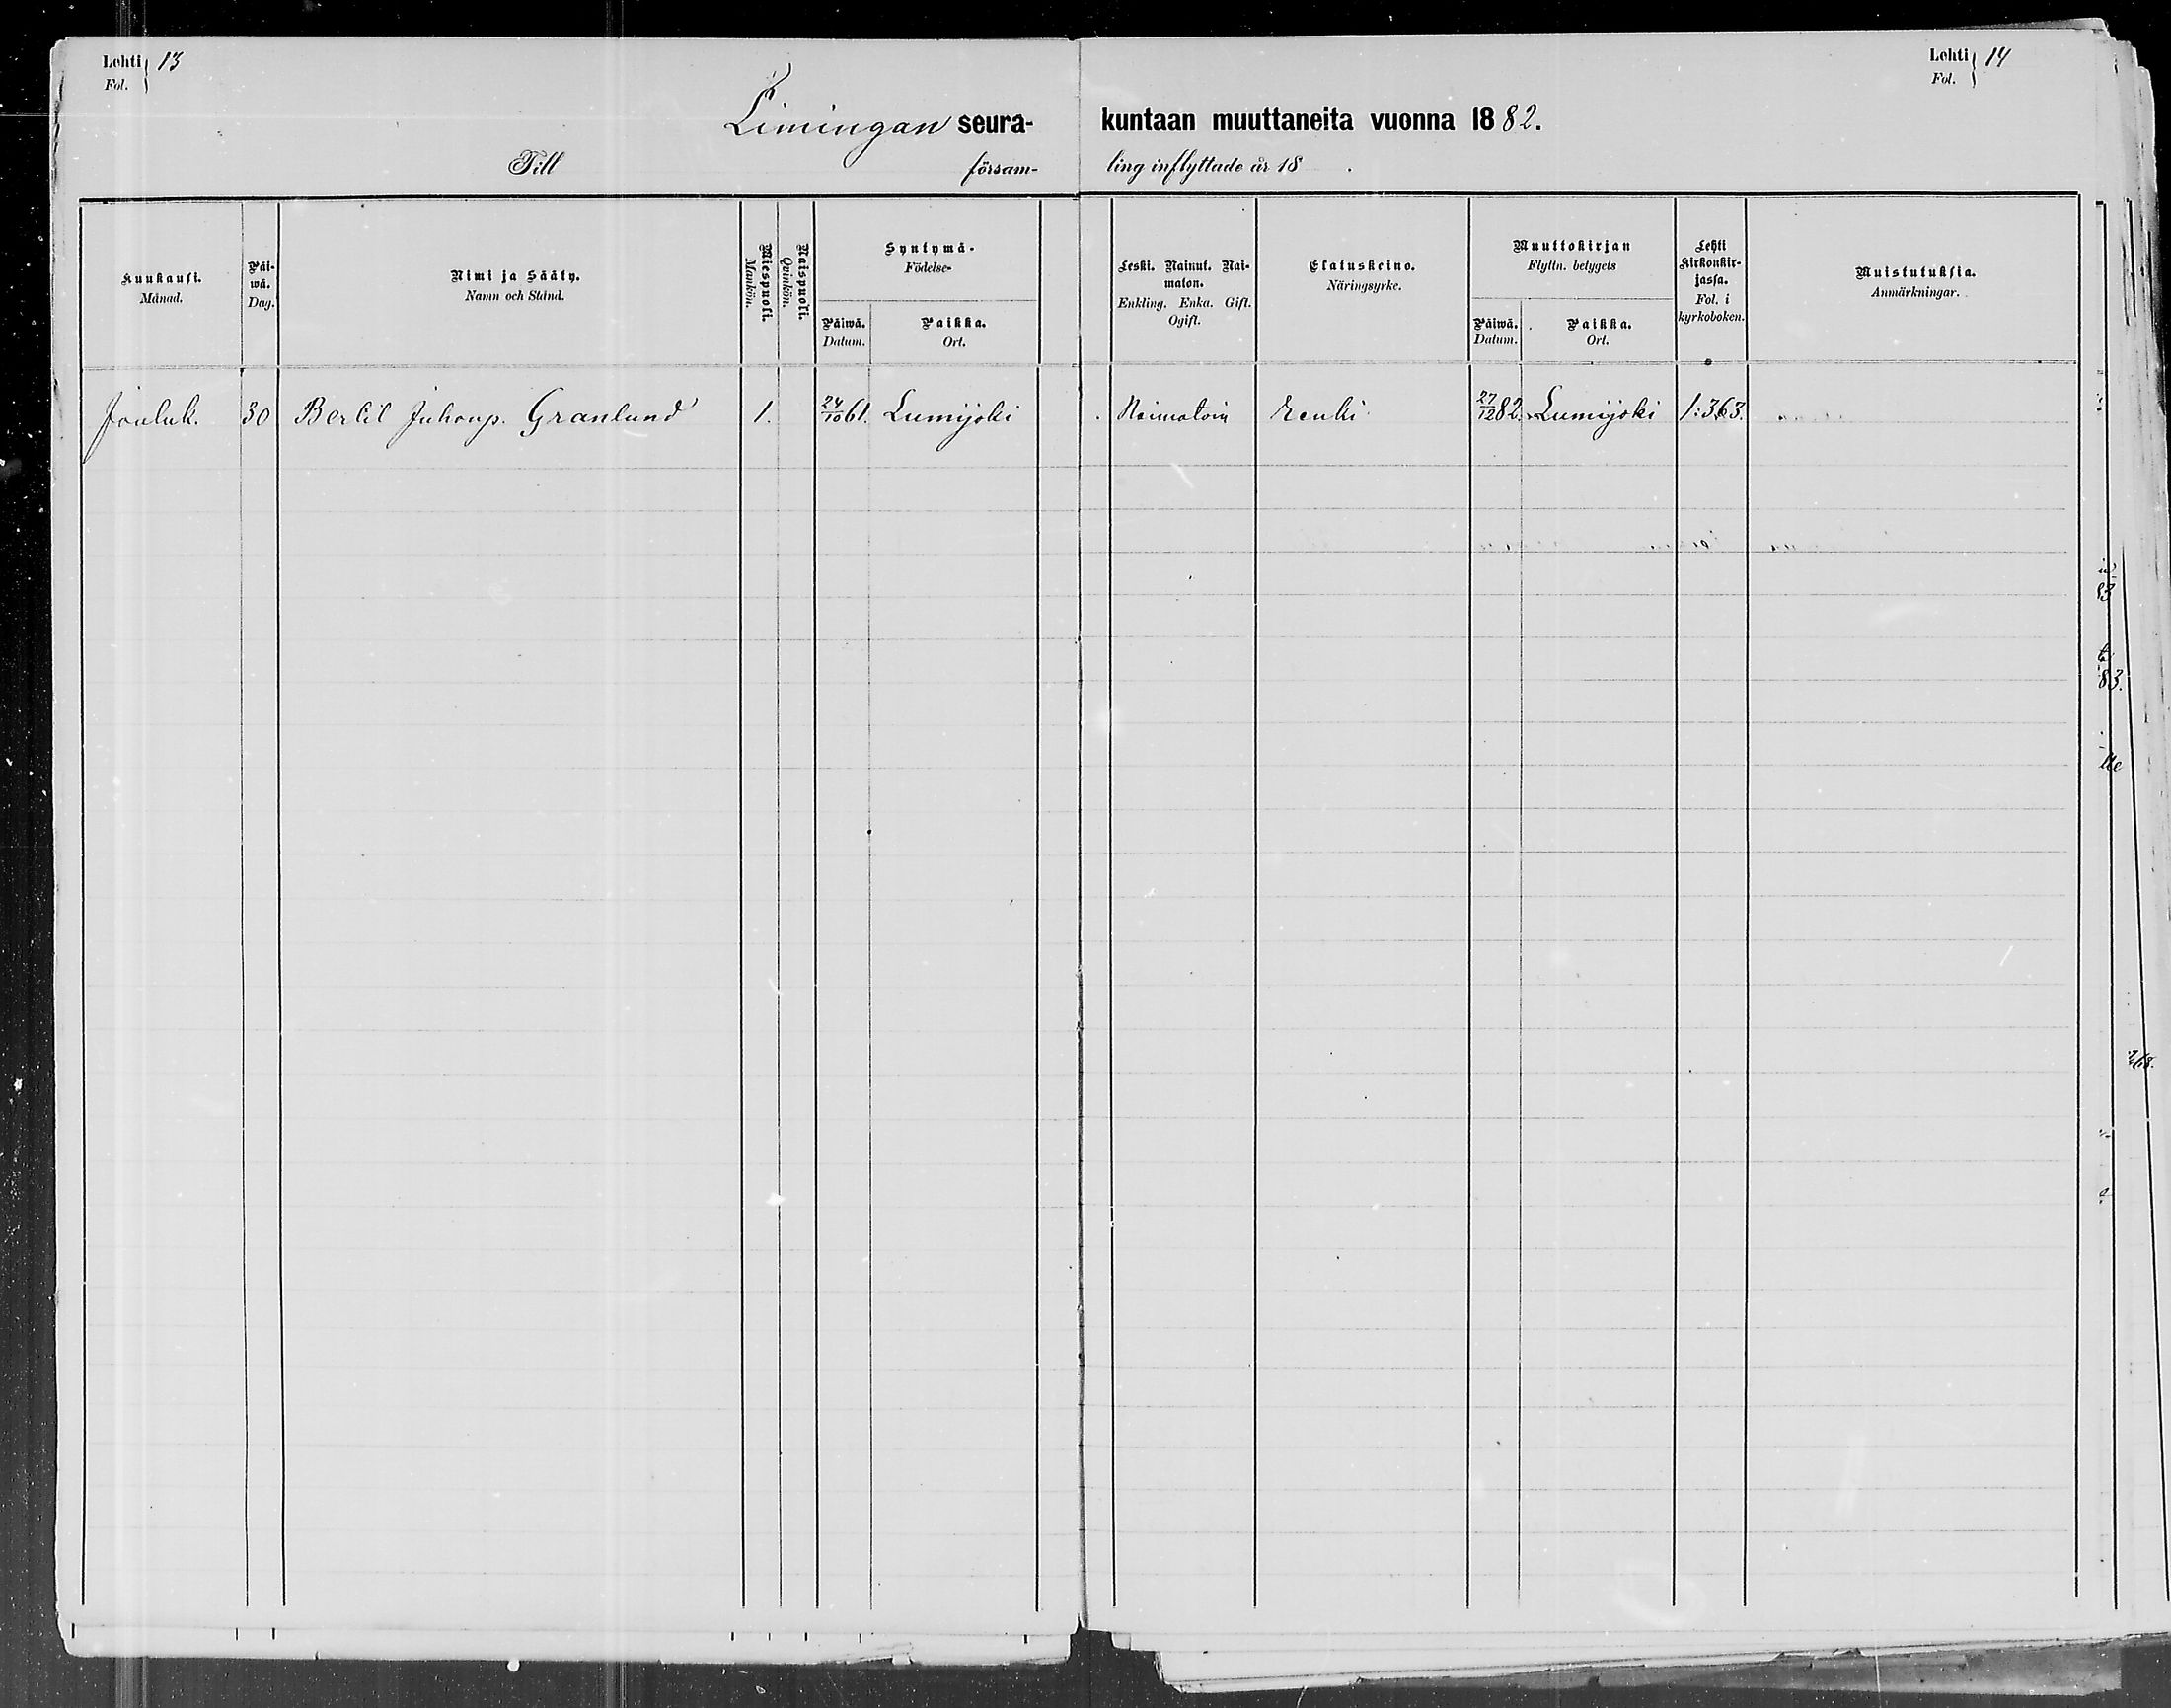 Lehti 13
Fol.
Lehti 14
Fol.
Limingan seura-kuntaan muuttaneita vuonna 1882.
Till församling inflyttade år 18 .
Kuukausi.
Månad.
Päiwä.
Dag.
Nimi ja Sääty.
Namn och Stånd.
Miespuoli.
Mankön.
Naispuoli.
Qvinkön.
Syntymä-
Födelse-
Päiwä.
Datum.
Paikka.
Ort.
Leski. Nainut. Naimaton.
Enkling. Enka. Gift.
Ogift.
Elatuskeino.
Näringsyrke.
Muuttokirjan
Flyttn. betygets
Päiwä.
Datum.
Paikka.
Ort.
Lehti
Kirkonkirjassa.
Fol. i
kyrkoboken.
Muistutuksia.
Anmärkningar.
Jouluk. 30 Bertil Juhonp. Granlund 1. 24/10 61. Lumijoki Naimatoin Renki 27/12 82. Lumijoki 1:363.